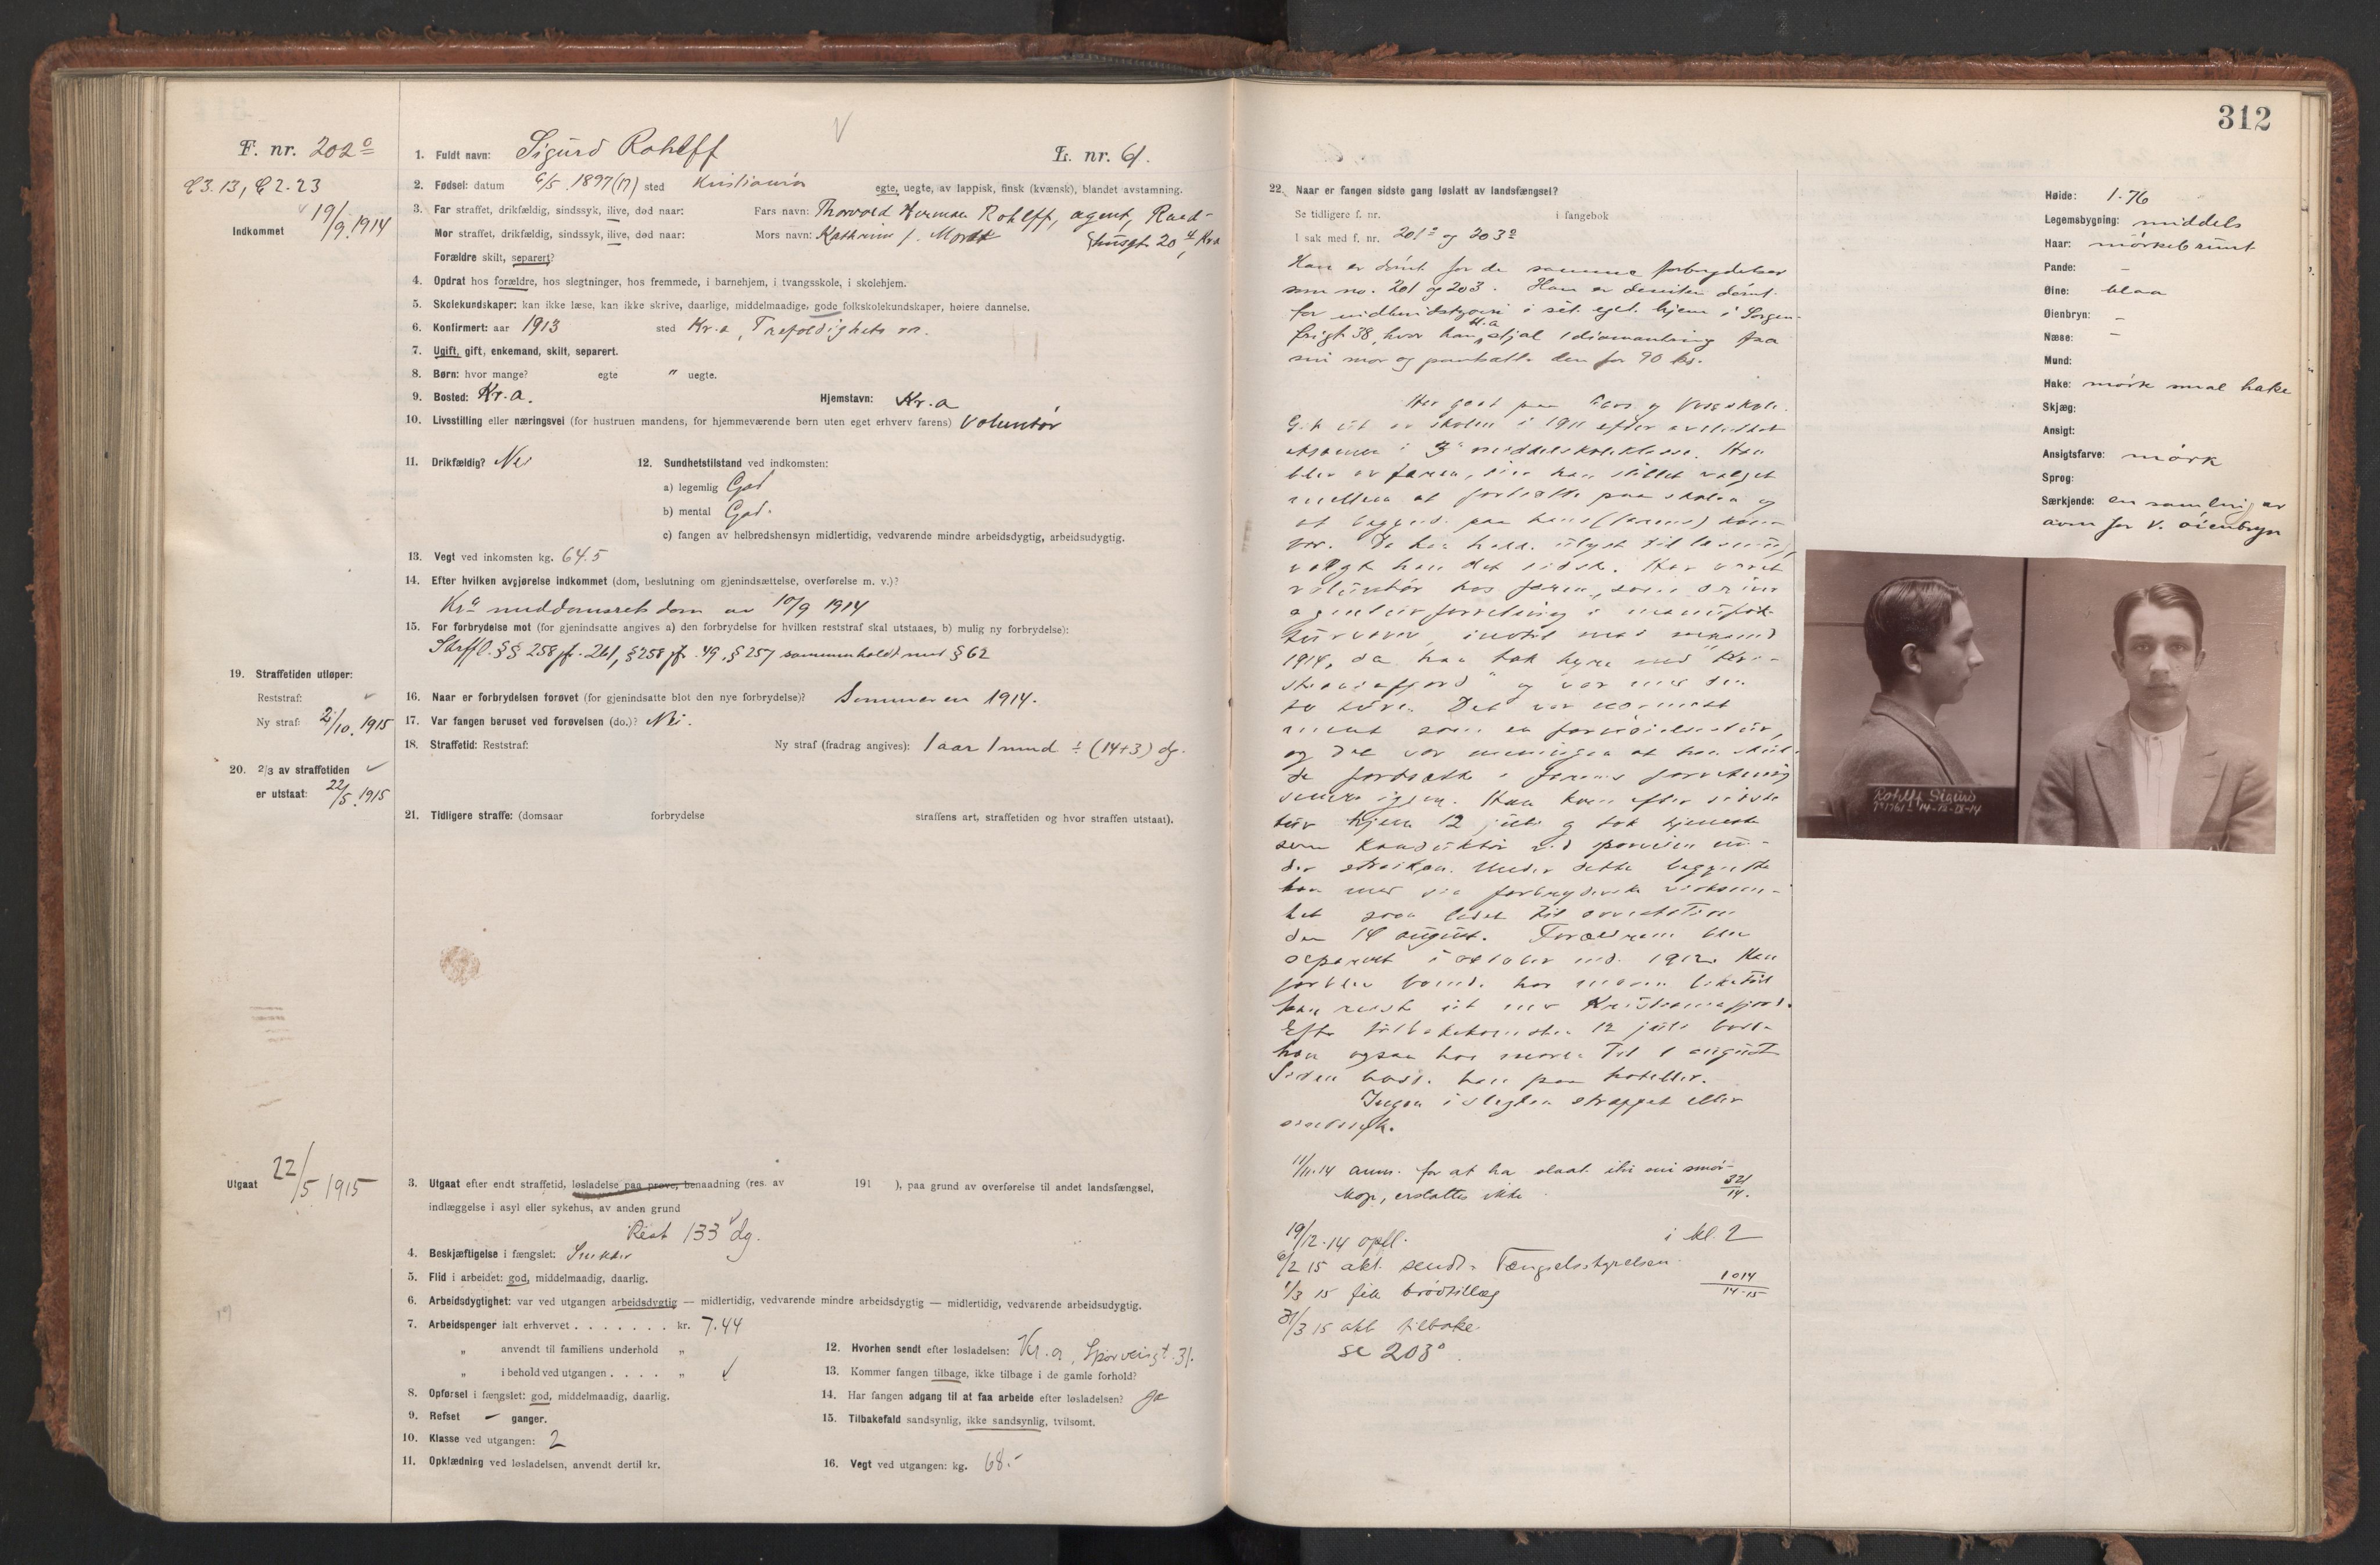 F. nr. 202
C 3.13, C 2.23
Indkommet 19/9.1914
1. Fuldt navn: Sigurd Rohlff
L. nr. 61.
2. Fødsel: datum 6/5. 1897 (17) sted Kristiania egte, uegte, av lappisk, finsk (kvænsk), blandet avstamning.
3. Far straffet, drikfældig, sindssyk, ilive, død naar: Fars navn: Thorvald Herman Rohlff, agent, Raad-
Mor straffet, drikfældig, sindssyk, ilive, død naar: Mors navn: Kathrine f. husgt. 20 4, Kr.a
Forældre skilt, separert?
4. Opdrat hos forældre, hos slegtninger, hos fremmede, i barnehjem, i tvangsskole, i skolehjem.
5. Skolekundskaper: kan ikke læse, kan ikke skrive, daarlige, middelmaadige, gode folkskolekundskaper, høiere dannelse.
6. Konfirmert: aar 1913 sted Kr.a, Trefoldighets m.
7. Ugift, gift, enkemand, skilt, separert.
8. Børn: hvor mange? egte " uegte.
9. Bosted: Kr.a. Hjemstavn: Kr.a
10. Livsstilling eller næringsvei (for hustruen mandens, for hjemmeværende børn uten eget erhverv farens) Voluntør
11. Drikfældig? Nei 12. Sundhetstilstand ved indkomsten:
a) legemlig God
b) mental God.
c) fangen av helbredshensyn midlertidig, vedvarende mindre arbeidsdygtig, arbeidsudygtig.
13. Vegt ved inkomsten kg. 64.5
14. Efter hvilken avgjørelse indkommet (dom, beslutning om gjenindsættelse, overførelse m. v.)?
Kra meddomsrets dom av 10/9 1914
15. For forbrydelse mot (for gjenindsatte angives a) den forbrydelse for hvilken reststraf skal utstaaes, b) mulig ny forbrydelse):
Strfl. §§ 258 jf. 261, § 258 jf. 49, § 257 sammenholdt med § 62
19. Straffetiden utløper:
Reststraf:
Ny straf: 2/10. 1915
16. Naar er forbrydelsen forøvet (for gjenindsatte blot den nye forbrydelse)? Sommeren 1914.
17. Var fangen beruset ved forøvelsen (do.)? Nei.
18. Straffetid: Reststraf: Ny straf (fradrag angives): 1 aar 1 mnd ÷ (14+3) dg.
20. 2/3 av straffetiden
er utstaat: 22/5. 1915
21. Tidligere straffe: (domsaar forbrydelse straffens art, straffetiden og hvor straffen utstaat).
Utgaat 22/5 1915
3. Utgaat efter endt straffetid, løsladelse paa prøve, benaadning (res. av 191 ), paa grund av overførelse til andet landsfængsel,
indlæggelse i asyl eller sykehus, av anden grund
Rest 133 dg.
4. Beskjæftigelse i fængslet: Snekker
5. Flid i arbeidet: god, middelmaadig, daarlig.
6. Arbeidsdygtighet: var ved utgangen arbeidsdygtig — midlertidig, vedvarende mindre arbeidsdygtig — midlertidig, vedvarende arbeidsudygtig.
7. Arbeidspenger ialt erhvervet . . . . . . . kr. 7.44
„ anvendt til familiens underhold „
„ i behold ved utgangen . . . . „
8. Opførsel i fængslet: god, middelmaadig, daarlig.
9. Refset - ganger.
10. Klasse ved utgangen: 2
11. Opklædning ved løsladelsen, anvendt dertil kr.
12. Hvorhen sendt efter løsladelsen: Kr.a, Sporveisgt. 31.
13. Kommer fangen tilbage, ikke tilbage i de gamle forhold?
14. Har fangen adgang til at faa arbeide efter løsladelsen? Ja
15. Tilbakefald sandsynlig, ikke sandsynlig, tvilsomt.
16. Vegt ved utgangen: kg. 68.-
312
22. Naar er fangen sidste gang løslatt av landsfængsel?
Se tidligere f. nr. i fangebok
I sak med f. nr. 201 og 203
Han er dømt for de samme forbrydelser
som no. 201 og 203. Han er desuten dømt
for indbrudstyveri i sit eget hjem i Sorgen-
frigt. 38, hvor han bl.a. stjal 1 diamantring fra
sin mor og pantsatte den for 90 kr.
Har gaat paa og Voss skole.
Gik ut av skolen i 1911 efter avsluttet
eksamen i 3 middelskoleklasse. Han
blev av faren, sier han stillet valget
mellem at fortsætte paa skolen og
at begynde paa hans (farens) kon-
tor. Da han hadde ulyst til læsning,
valgte han det sidste. Har været
voluntør hos faren, som driver
agenturforretning i manufak-
turvarer, indtil mai
1914, da han tok hyre med "Kri-
stianiafjord" og var med den
to turer. Det var nærmest
ment som en fornøielsestur,
og det var meningen at han skul-
de fortsætte i farens forretning
senere igjen. Han kom efter sidste
tur hjem 12 juli og tok tjeneste
som konduktør ved sporveien un-
der streiken. Under dette begyndte
han med sin forbryderske virksom-
het som ledet til arrestation
den 14 august. Forældrene blev
separert i oktober md. 1912. Han
forblev boende hos moren liketil
han reiste ut med Kristianiafjord.
Efter tilbakekomsten 12 juli bodde
han ogsaa hos moren til 1 august
Siden bodde han paa hoteller.
Ingen i slegten straffet eller
sindssyk.
11/11.14 anm. for at ha slaat itu sin smør-
kop, erstattes ikke 321/14.
19/12.14 opfl. i kl. 2
6/2 15 akt. sendt Fængselsstyrelsen
1/3 15 fik brødtillæg 1014/14-15
31/3 15 akt tilbake.
se 203
Høide: 1.76
Legemsbygning: middels
Haar: mørkebrunt
Pande: -
Øine: blaa
Øienbryn: -
Næse: -
Mund:
Hake: mørk smal hake
Skjæg:
Ansigt:
Ansigtsfarve: mørk
Sprog:
Særkjende: en samling av
arr for v. øienbryn
Rohlff, Sigurd